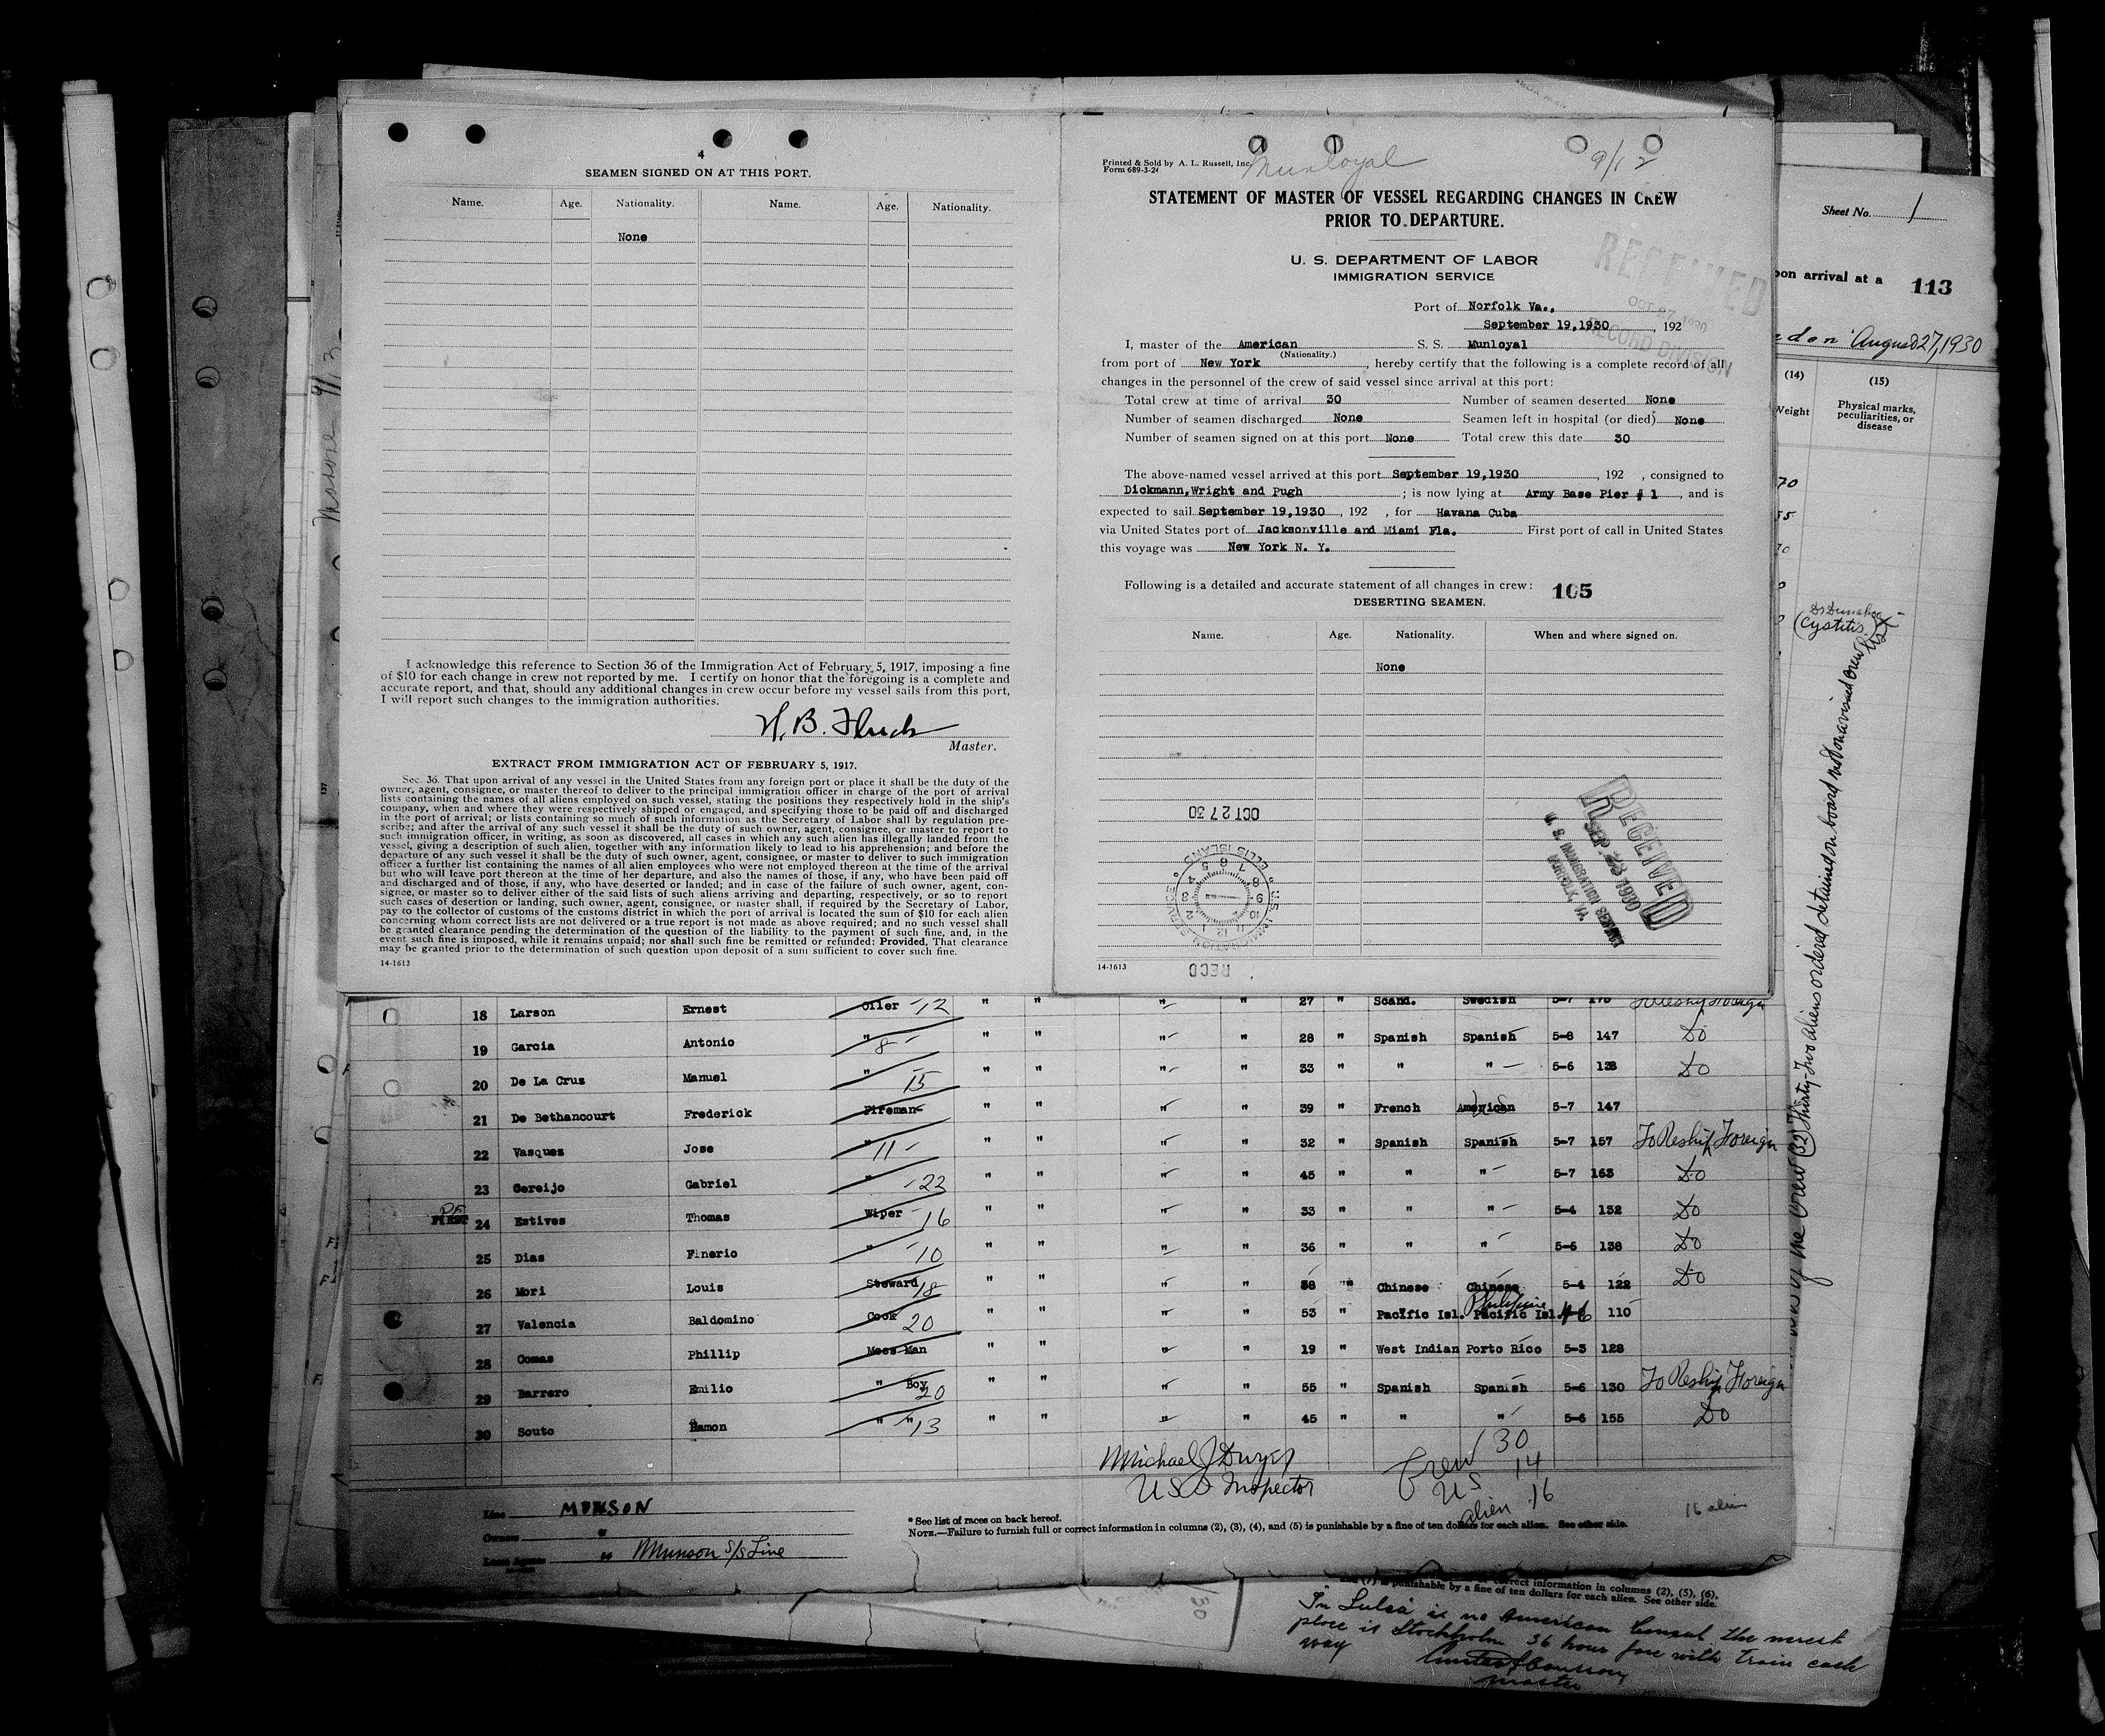 4
SEAMEN SIGNED ON AT THIS PORT.
Name. Age. Nationality. Name. Age. Nationality.
None
I acknowledge this reference to Section 36 of the Immigration Act of February 5, 1917, imposing a fine
of $10 for each change in crew not reported by me. I certify on honor that the foregoing is a complete and
accurate report, and that, should any additional changes in crew occur before my vessel sails from this port,
I will report such changes to the immigration authorities.
Master.
EXTRACT FROM IMMIGRATION ACT OF FEBRUARY 5, 1917.
Sec. 36. That upon arrival of any vessel in the United States from any foreign port or place it shall be the duty of the
owner, agent, consignee, or master thereof to deliver to the principal immigration officer in charge of the port of arrival
lists containing the names of all aliens employed on such vessel, stating the positions they respectively hold in the ship's
company, when and where they were respectively shipped or engaged, and specifying those to be paid off and discharged
in the port of arrival; or lists containing so much of such information as the Secretary of Labor shall by regulation pre-
scribe; and after the arrival of any such vessel it shall be the duty of such owner, agent, consignee, or master to report to
such immigration officer, in writing, as soon as discovered, all cases in which any such alien has illegally landed from the
vessel, giving a description of such alien, together with any information likely to lead to his apprehension; and before the
departure of any such vessel it shall be the duty of such owner, agent, consignee, or master to deliver to such immigration
officer a further list containing the names of all alien employees who were not employed thereon at the time of the arrival
but who will leave port thereon at the time of her departure, and also the names of those, if any, who have been paid off
and discharged and of those, if any, who have deserted or landed; and in case of the failure of such owner, agent, con-
signee, or master so to deliver either of the said lists of such aliens arriving and departing, respectively, or so to report
such cases of desertion or landing, such owner, agent, consignee, or master shall, if required by the Secretary of Labor,
pay to the collector of customs of the customs district in which the port of arrival is located the sum of $10 for each alien
concerning whom correct lists are not delivered or a true report is not made as above required; and no such vessel shall
be granted clearance pending the determination of the question of the liability to the payment of such fine, and, in the
event such fine is imposed, while it remains unpaid; nor shall such fine be remitted or refunded: Provided, That clearance
may be granted prior to the determination of such question upon deposit of a sum sufficient to cover such fine.
14-1613
Printed & Sold by A. L. Russell, Inc.
Form 689-3-24
Munloyal 9/12
STATEMENT OF MASTER OF VESSEL REGARDING CHANGES IN CREW
PRIOR TO DEPARTURE.
U. S. DEPARTMENT OF LABOR
IMMIGRATION SERVICE
RECEIVED
OCT 27 1930
RECORD DIVISION
Port of Norfolk Va.,
September 19,1930, 192
I, master of the American S. S. Munloyal
(Nationality.)
from port of New York, hereby certify that the following is a complete record of all
changes in the personnel of the crew of said vessel since arrival at this port:
Total crew at time of arrival 30 Number of seamen deserted None
Number of seamen discharged None Seamen left in hospital (or died) None
Number of seamen signed on at this port None Total crew this date 30
The above-named vessel arrived at this port September 19,1930, 192 , consigned to
Dickmann,Wright and Pugh ; is now lying at Army Base Pier # 1, and is
expected to sail September 19,1930, 192 , for Havana Cuba
via United States port of Jacksonville and Miami Fla. First port of call in United States
this voyage was New York N. Y.
Following is a detailed and accurate statement of all changes in crew: 105
DESERTING SEAMEN.
Name. Age. Nationality. When and where signed on.
None
OCT 27 30
U. S. IMMIGRATION SERVICE
ELLIS ISLAND
RECD
RECEIVED
SEP 23 1930
U. S. IMMIGRATION SERVICE
NORFOLK, VA.
14-1613
Sheet No. 1
on arrival at a 113
August 27, 1930
(14) (15)
Weight Physical marks, peculiarities, or disease
(Cystitis)
Thirty-Two aliens ordered detained on board
18 Larson Ernest Oiler 12 " " " " 27 " Scand. Swedish 5-7 170 To Reship Foreign
19 Garcia Antonio " 8 " " " " 28 " Spanish Spanish 5-8 147 Do
20 De La Crus Manuel " 15 " " " " 33 " " " 5-6 138 Do
21 De Bethancourt Frederick Fireman " " " " 39 " French American US 5-7 147
22 Vasques Jose " 11 " " " " 32 " Spanish Spanish 5-7 157 To Reship Foreign
23 Cereijo Gabriel " 22 " " " " 45 " " " 5-7 163 Do
FIRST 24 Estives Thomas Wiper 16 " " " " 33 " " " 5-4 132 Do
25 Dias Finerio " 10 " " " " 36 " " " 5-6 138 Do
26 Mori Louis Steward 18 " " " " 38 " Chinese Chinese 5-4 122 Do
27 Valencia Baldomino Cook 20 " " " " 53 " Pacific Isl. Pacific Isl. Philippine 110
28 Comas Phillip Mess Man " " " " 19 " West Indian Porto Rico 5-3 128
29 Barrero Emilio " Boy 20 " " " " 55 " Spanish Spanish 5-6 130 To Reship Foreign
30 Souto Ramon " " 13 " " " " 45 " " " 5-6 155 Do
Michael J Dwyer
U S Inspector
Crew 30
US 14
alien 16
16 alien
Line MUNSON
Owners "
Local Agents " Munson S/S Line
* See list of races on back hereof.
NOTE.—Failure to furnish full or correct information in columns (2), (3), (4), and (5) is punishable by a fine of ten dollars for each alien. See other side.
correct information in columns (2), (5), (6),
is punishable by a fine of ten dollars for each alien. See other side.
In Luleå is no American Consul the nerest
place is Stockholm 36 hour fare with train each
way
master